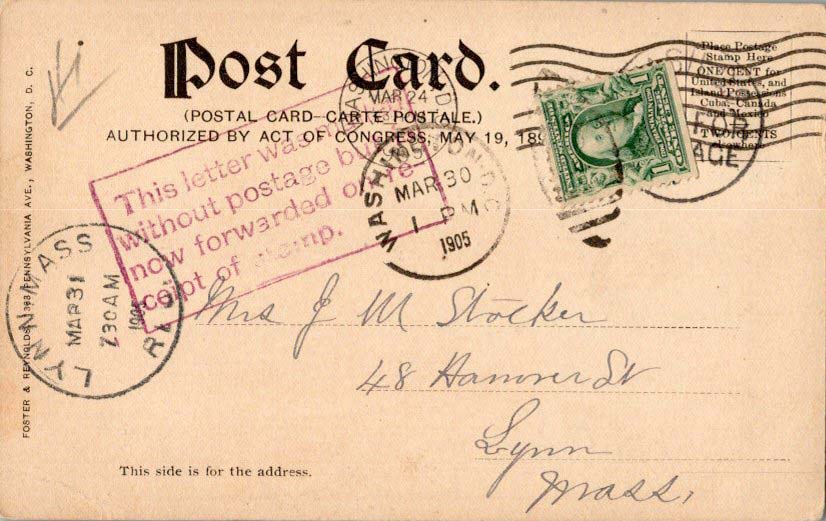 Post Card.
(POSTAL CARD—CARTE POSTALE.)
AUTHORIZED BY ACT OF CONGRESS, MAY 19, 189
Place Postage
Stamp Here
ONE CENT for
United States, and
Island Possessions
Cuba, Canada
and Mexico
TWO CENTS
elsewhere
AGE
WASHINGTON, D.C.
MAR 24
WASHINGTON, D.C.
MAR 30
1 PM
1905
This letter was
without postage but
now forwarded on re-
ceipt of stamp.
LYNN MASS
MAR 31
7 30 AM
REC'D
Mrs J M Stocker
48 Hanover St
Lynn
Mass,
This side is for the address.
FOSTER & REYNOLDS, 1363 PENNSYLVANIA AVE., WASHINGTON, D. C.